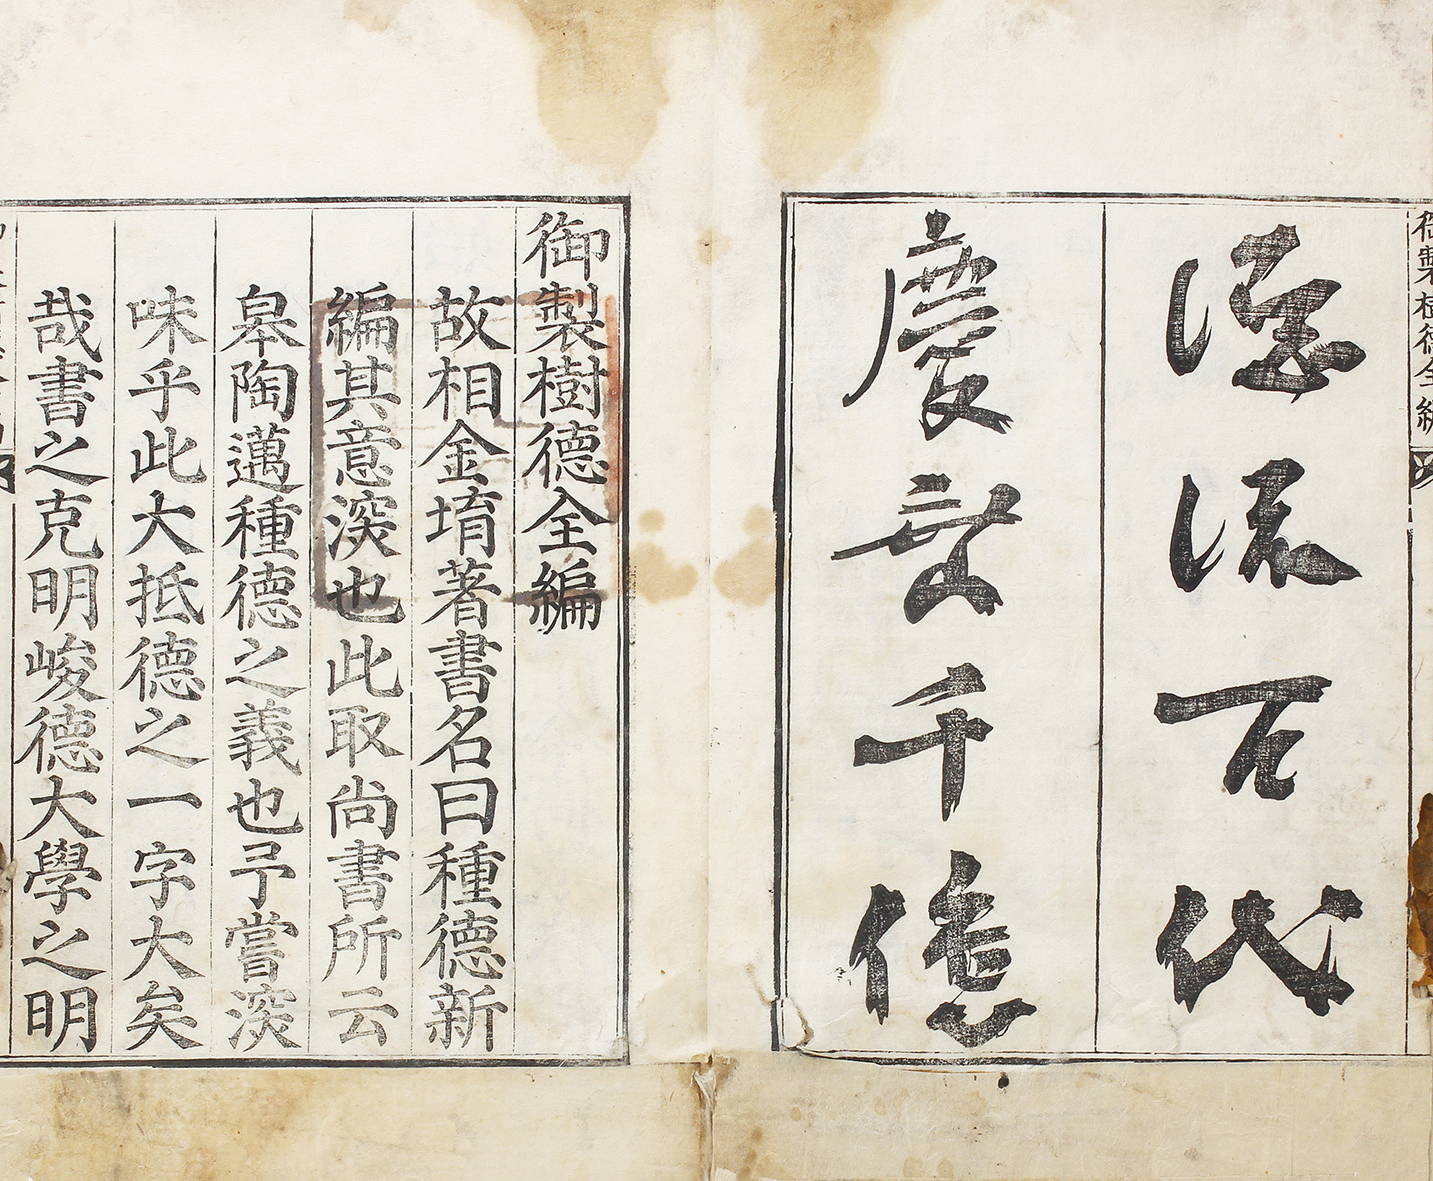 御製樹德全編
德流百代
慶墊千億
御製樹德全編
故相金堉著書名曰種德新
編其意深也此取尚書所云
皐陶邁種德之義也予嘗深
味乎此大抵德之一字大矣
哉書之克明峻德大學之明